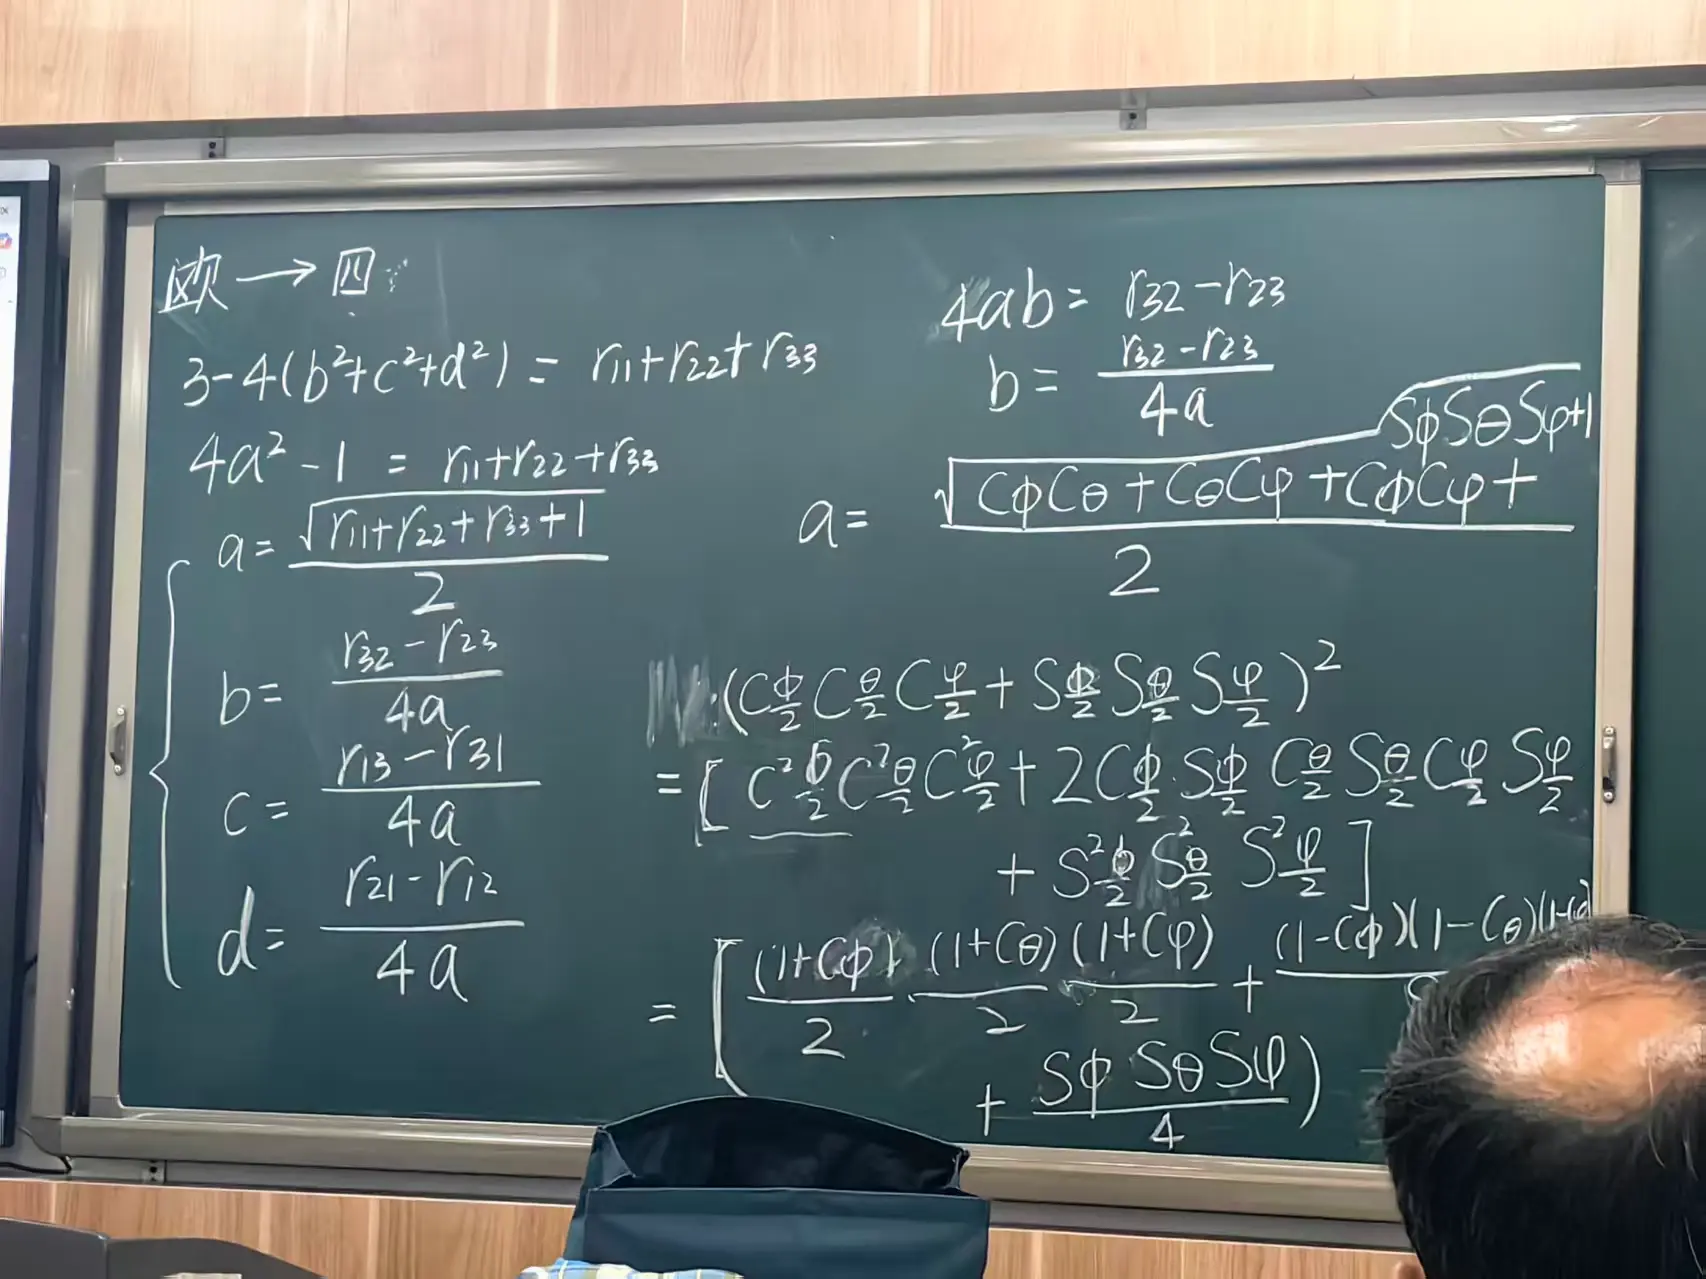 欧→四
3-4(b²+c²+d²) = r₁₁+r₂₂+r₃₃
4a²-1 = r₁₁+r₂₂+r₃₃
a= √(r₁₁+r₂₂+r₃₃+1) / 2
b= (r₃₂-r₂₃) / 4a
c= (r₁₃-r₃₁) / 4a
d= (r₂₁-r₁₂) / 4a
4ab= r₃₂-r₂₃
b= (r₃₂-r₂₃) / 4a
a= √(CϕCθ+CθCφ+CϕCφ+SϕSθSφ+1) / 2
(C ϕ/2 C θ/2 C φ/2 + S ϕ/2 S θ/2 S φ/2)²
=[C² ϕ/2 C² θ/2 C² φ/2 + 2C ϕ/2 · S ϕ/2 C θ/2 S θ/2 C φ/2 S φ/2
+ S² ϕ/2 S² θ/2 S² φ/2]
= [(1+Cϕ)/2 (1+Cθ)/2 (1+Cφ)/2 + (1-Cϕ)(1-Cθ)(1-C
+ SϕSθSφ / 4)